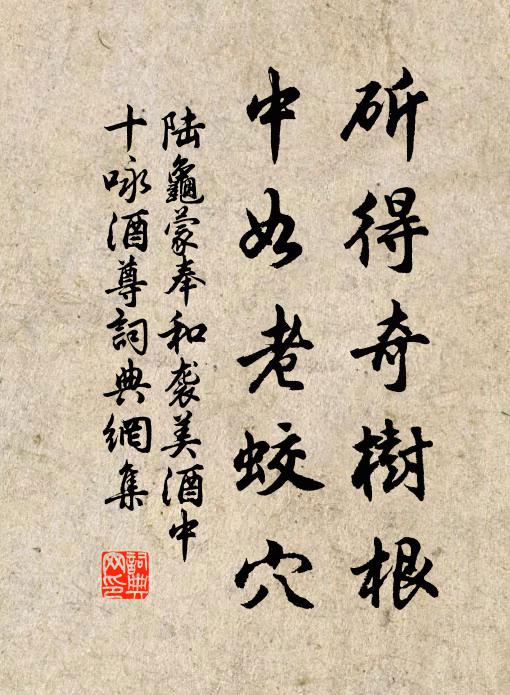 斫得奇樹根
中如老蛟穴
陆龜蒙奉和袭美酒中
十咏酒尊詞典網集
詞典网印